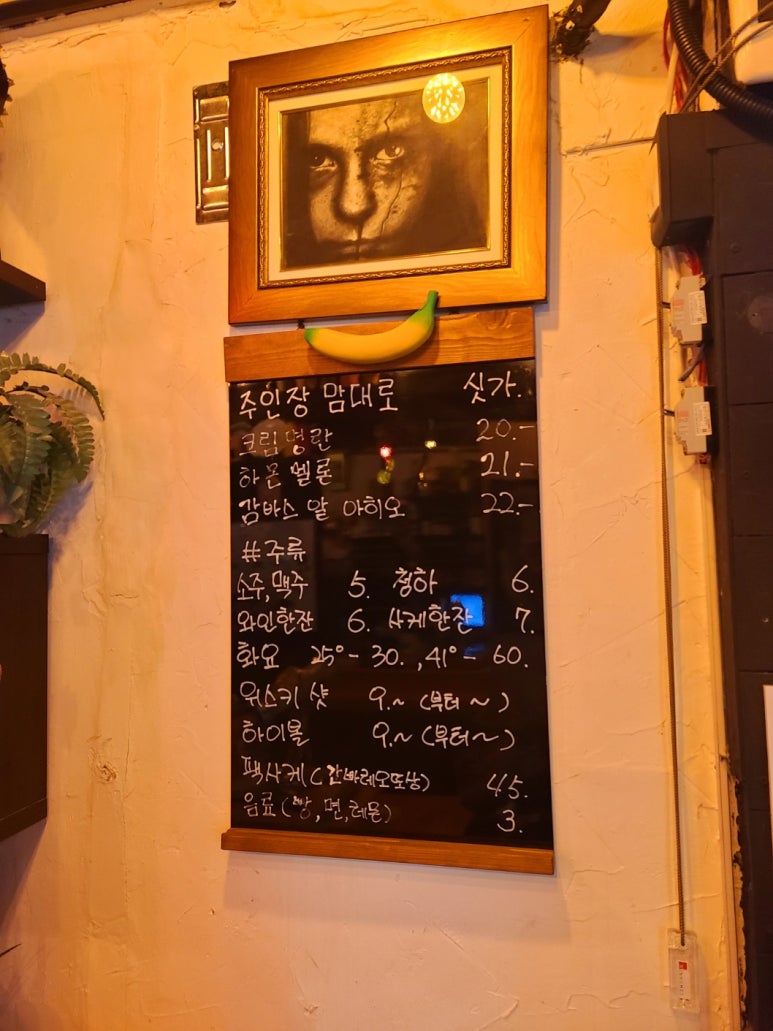 주인장 맘대로 싯가.
크림명란 20.-
하몬멜론 21.-
감바스 알 아히오 22.-
#주류
소주,맥주 5. 청하 6.
와인한잔 6. 사케한잔 7.
화요 25°- 30. , 41°- 60.
위스키 샷 9.~ (부터~)
하이볼 9.~ (부터~)
팩사케(간바레오또상) 45.
음료( , 면,레몬) 3.